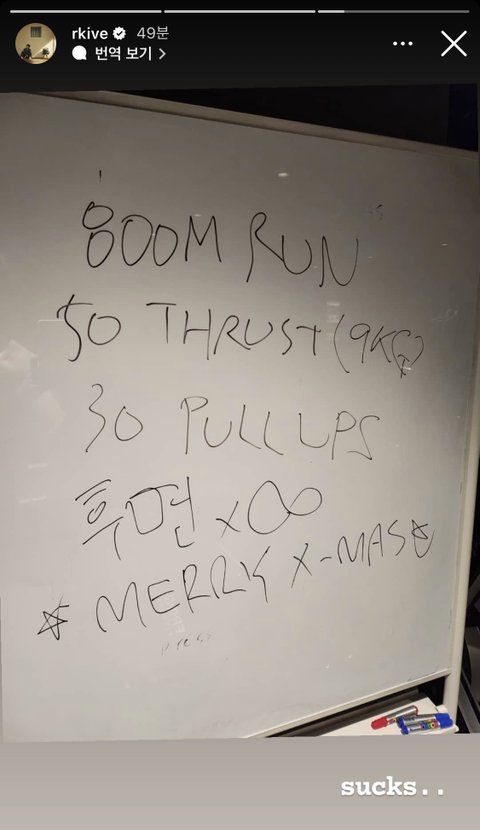 rkive 49분
번역 보기
800M RUN
50 THRUST (9KG)
30 PULL UPS
후면 x∞
☆ MERRY X-MAS☆
Press
sucks..